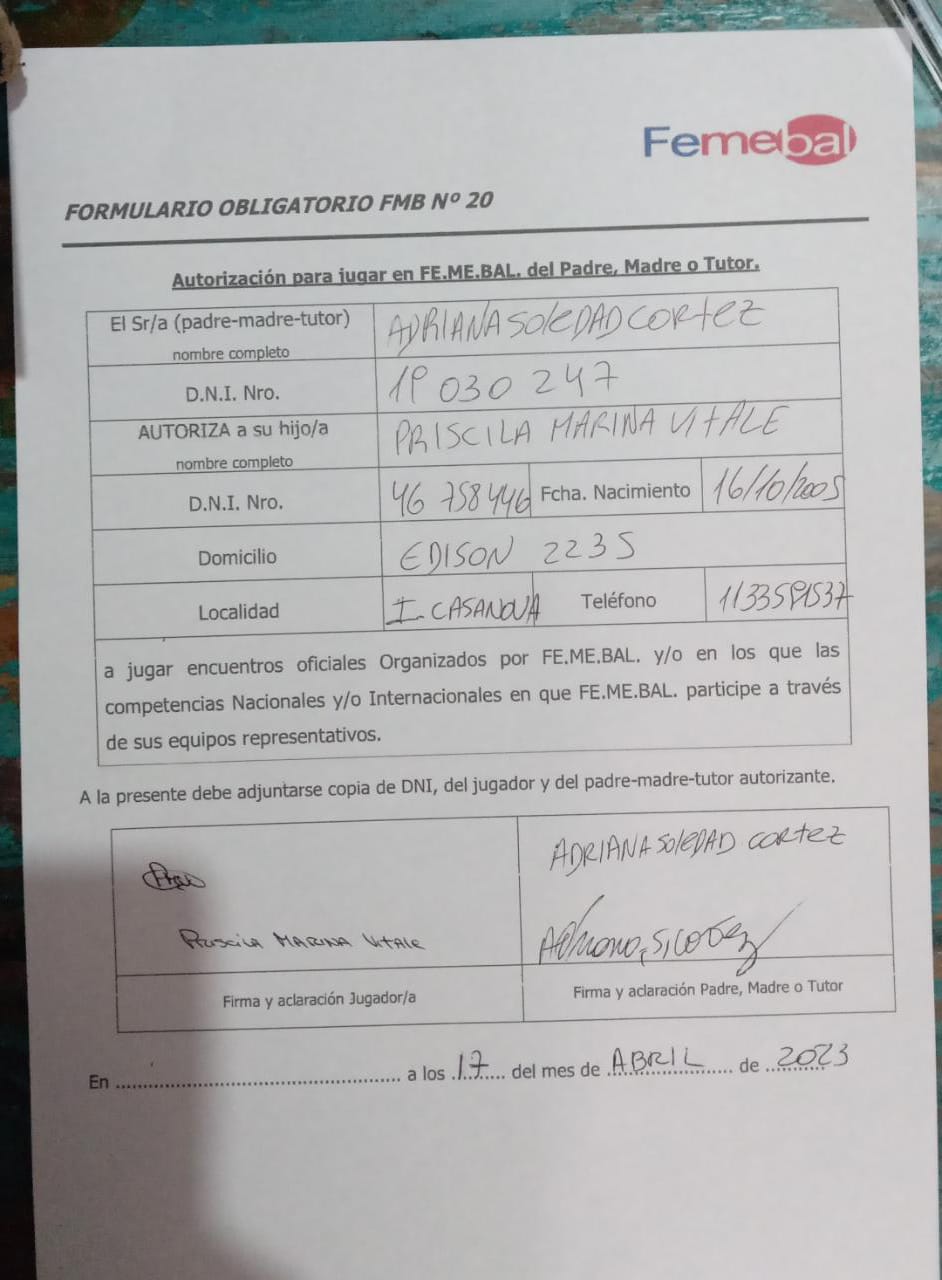 Femebal
FORMULARIO OBLIGATORIO FMB Nº 20
Autorización para jugar en FE.ME.BAL. del Padre, Madre o Tutor.
El Sr/a (padre-madre-tutor) ADRIANA SOLEDAD CORTEZ
nombre completo
D.N.I. Nro. 19 030 247
AUTORIZA a su hijo/a PRISCILA MARINA VITALE
nombre completo
D.N.I. Nro. 46 758 446 Fcha. Nacimiento 16/10/2005
Domicilio EDISON 2235
Localidad I. CASANOVA Teléfono
a jugar encuentros oficiales Organizados por FE.ME.BAL. y/o en los que las
competencias Nacionales y/o Internacionales en que FE.ME.BAL. participe a través
de sus equipos representativos.
A la presente debe adjuntarse copia de DNI, del jugador y del padre-madre-tutor autorizante.
ADRIANA SOLEDAD CORTEZ
PRISCILA MARINA VITALE
Firma y aclaración Jugador/a Firma y aclaración Padre, Madre o Tutor
En ........................................ a los 17 del mes de ABRIL de 2023